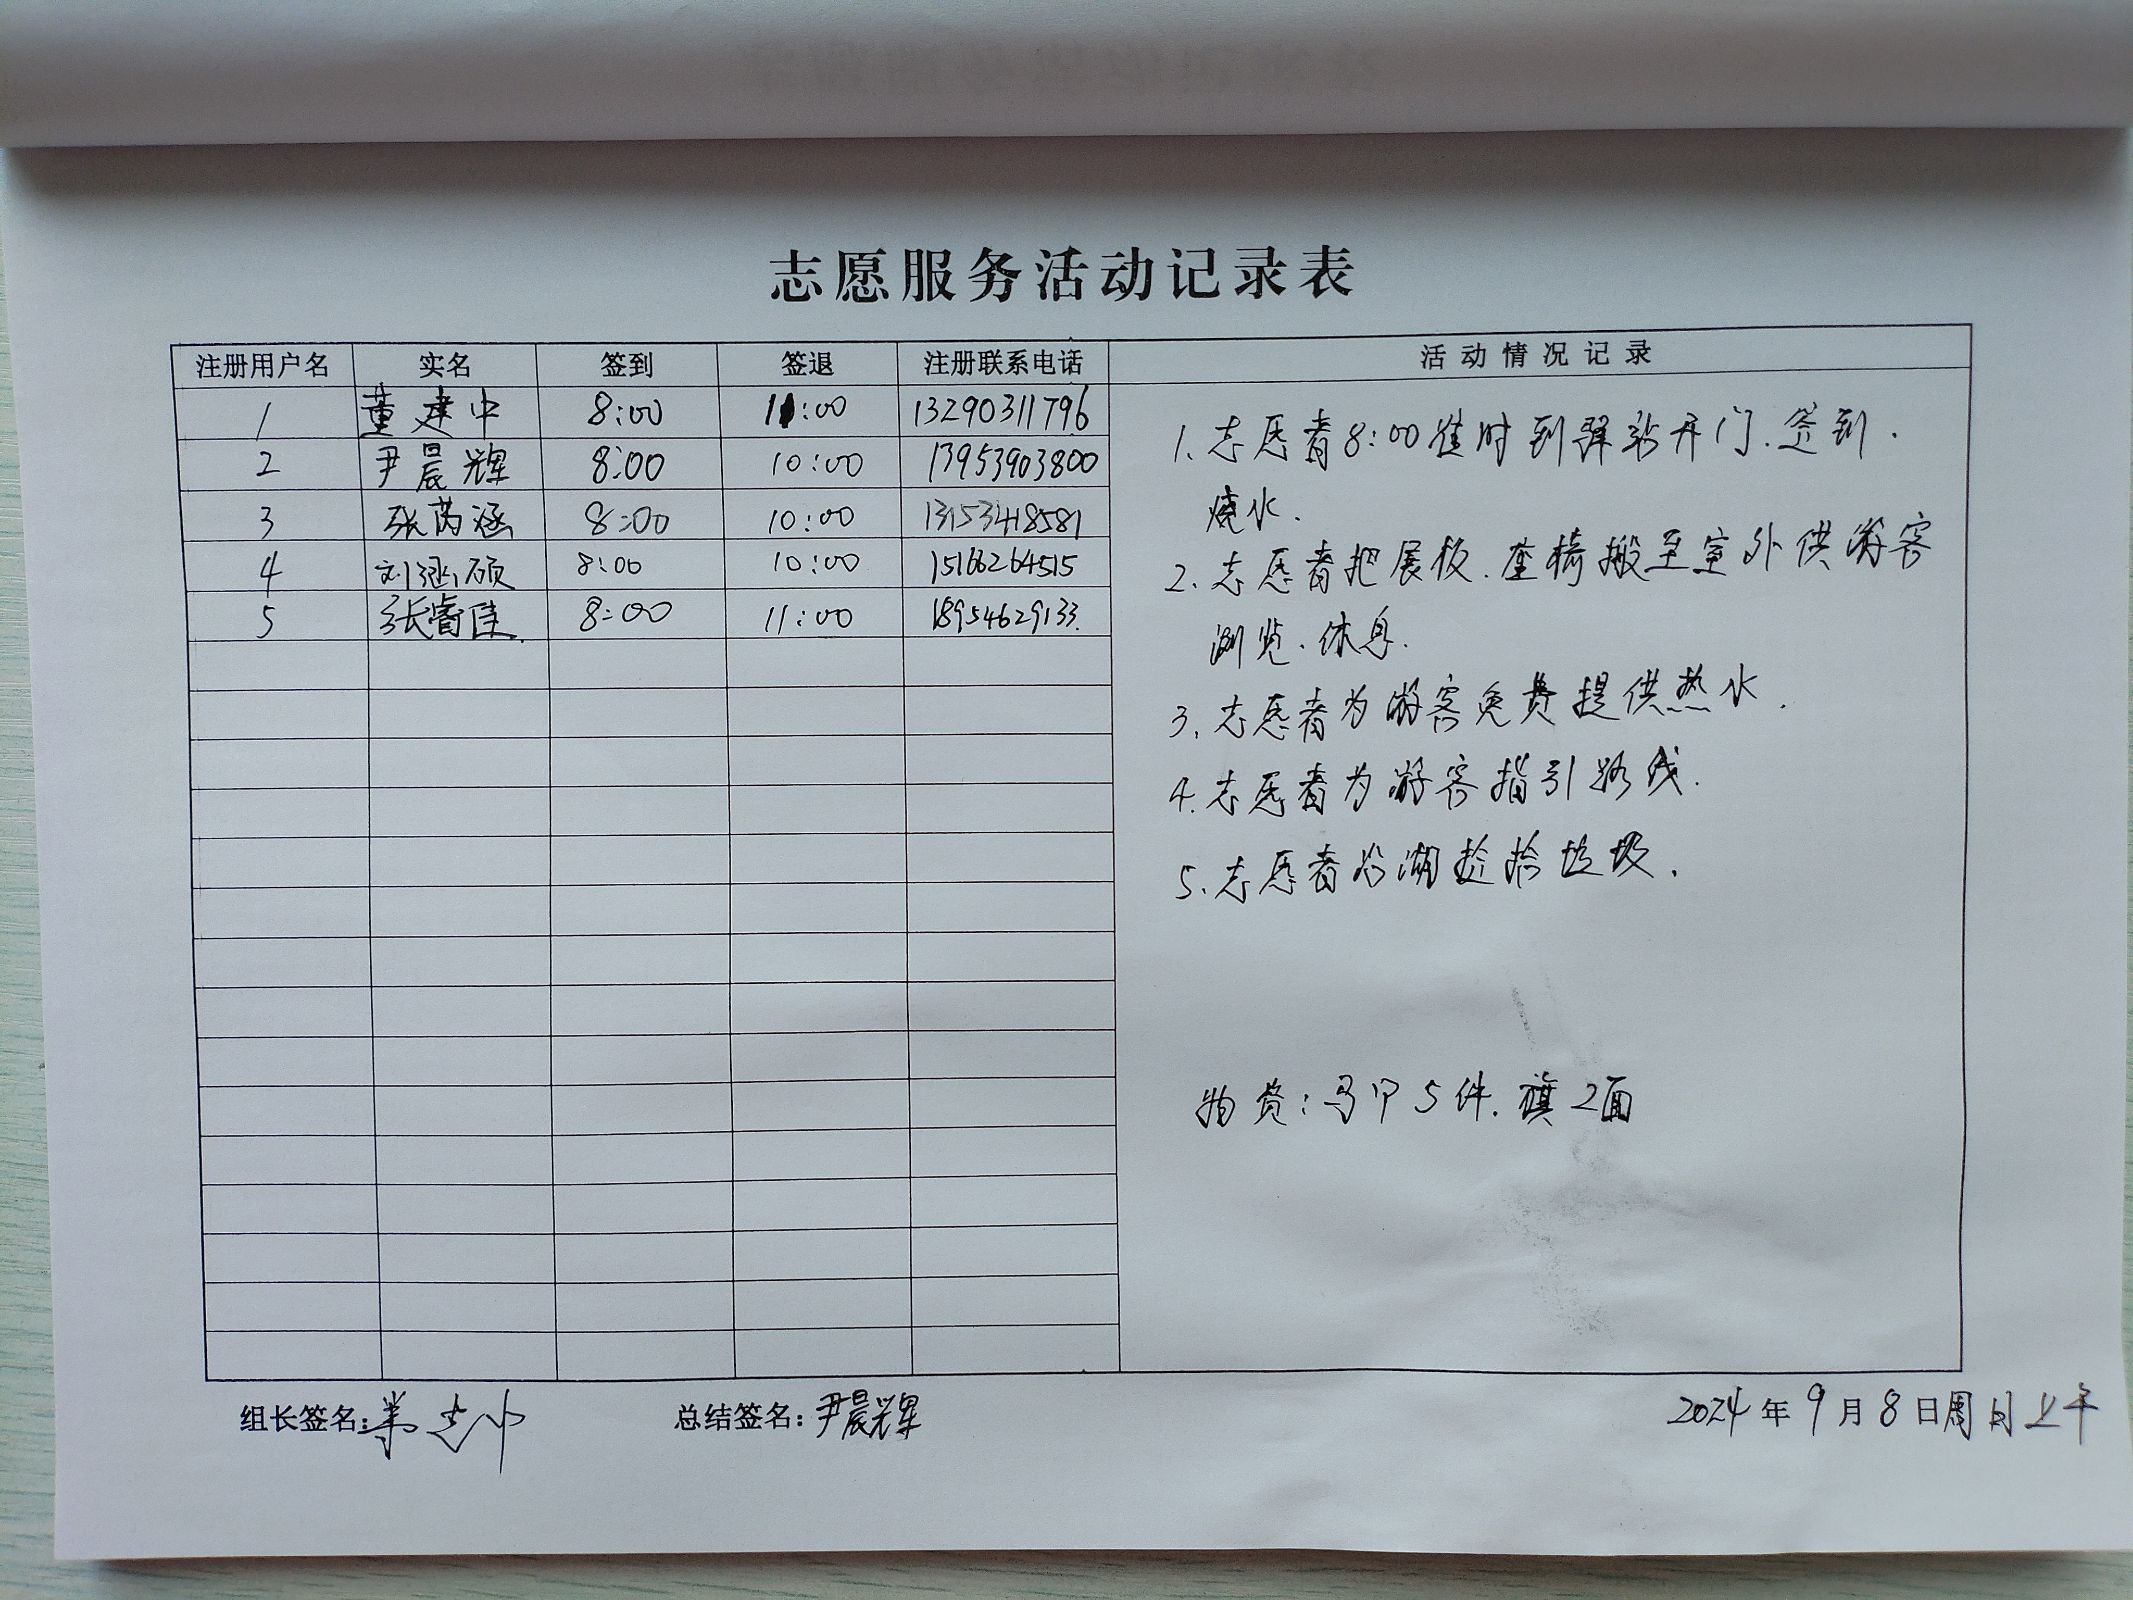 志愿服务活动记录表
注册用户名 实名 签到 签退 注册联系电话 活动情况记录
1 董建中 8:00 11:00 13290311796
2 尹晨辉 8:00 10:00 13953903800
3 张芮涵 8:00 10:00 13153418581
4 刘涵硕 8:00 10:00 15166264515
5 张睿佳 8:00 11:00 18954629133
1. 志愿者8:00准时到驿站开门.签到.
烧水.
2. 志愿者把展板.座椅搬至室外供游客
浏览.休息.
3. 志愿者为游客免费提供热水.
4. 志愿者为游客指引路线.
5. 志愿者沿湖捡拾垃圾.
物资:马甲5件.旗2面
组长签名:董建中 总结签名:尹晨辉 2024年9月8日周日上午